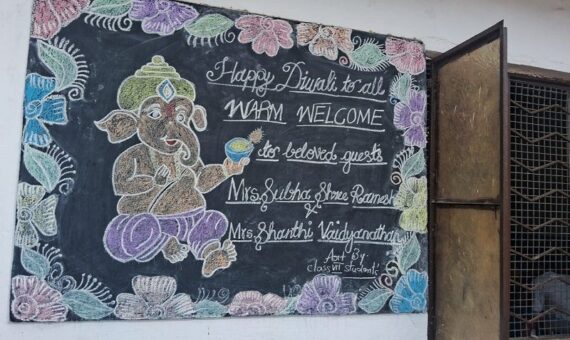 Happy Diwali to all
WARM WELCOME
to beloved guests
Mrs. Subha Shree Ramesh
&
Mrs. Shanthi Vaidyanathan
Art By
class VII students